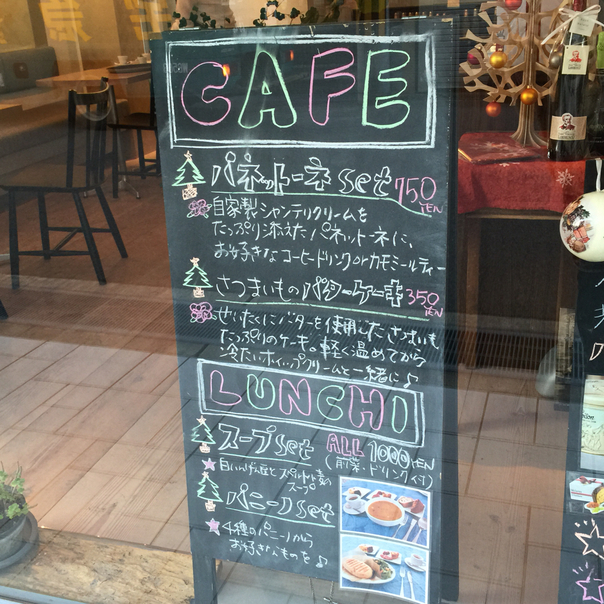 CAFE
パネットーネ set 750 YEN
自家製シャンテリクリームを
たっぷり添えたパネットーネに、
お好きなコーヒードリンク or カモミールティー
さつまいものバターケーキ 350 YEN
ぜいたくにバターを使用したさつまいも
たっぷりのケーキ。軽く温めてから
冷たいホイップクリームと一緒に♪
LUNCH!
スープ set ALL 1000 YEN
(前菜・ドリンク付)
白いんげん豆とスペルト小麦の
スープ
パニーノ set
4種のパニーノから
お好きなものを♪